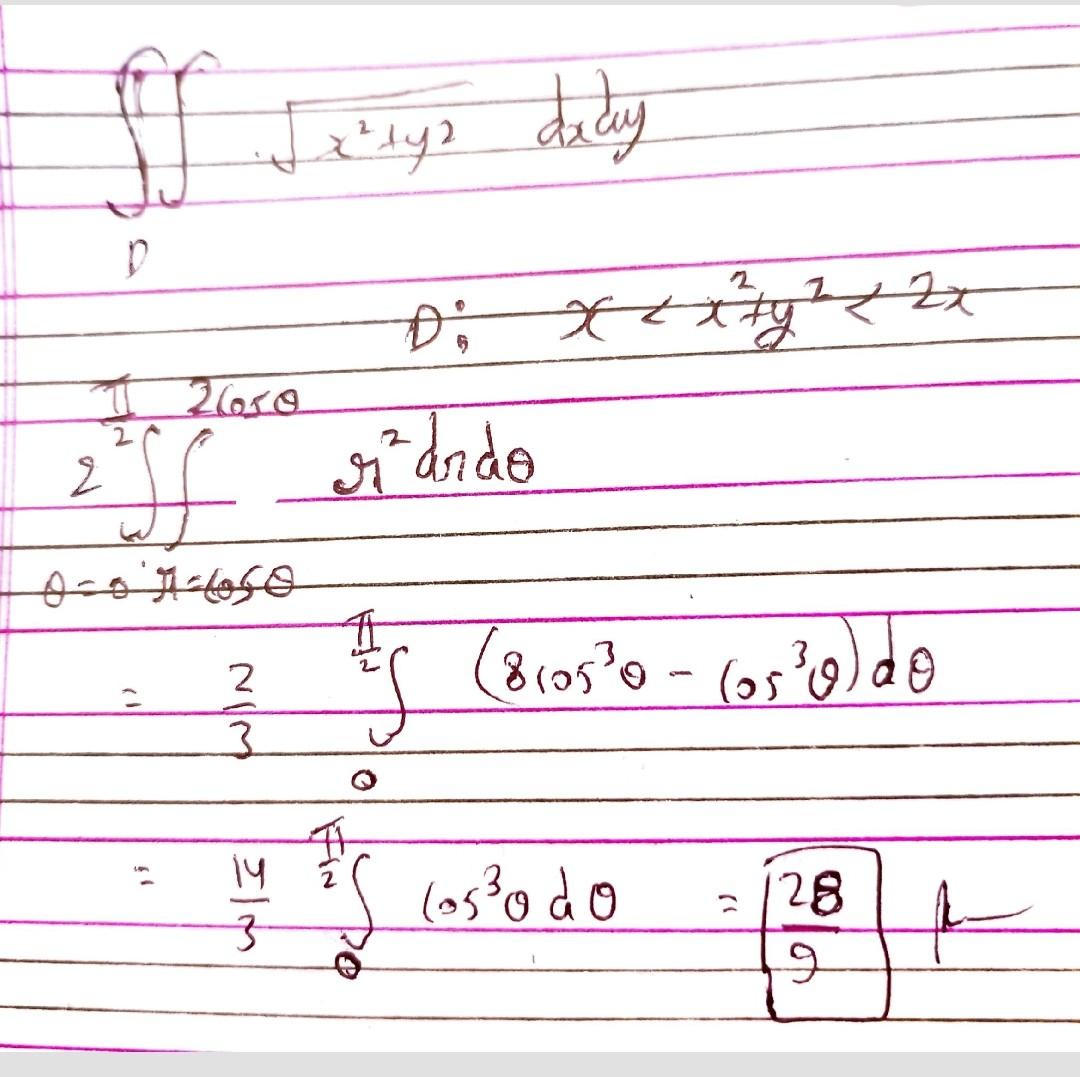 ∬_D √(x²+y²) dxdy
D: x < x²+y² < 2x
2 ∫_{θ=0}^{π/2} ∫_{r=cosθ}^{2cosθ} r² dr dθ
= 2/3 ∫_0^{π/2} (8cos³θ - cos³θ) dθ
= 14/3 ∫_0^{π/2} cos³θ dθ = 28/9